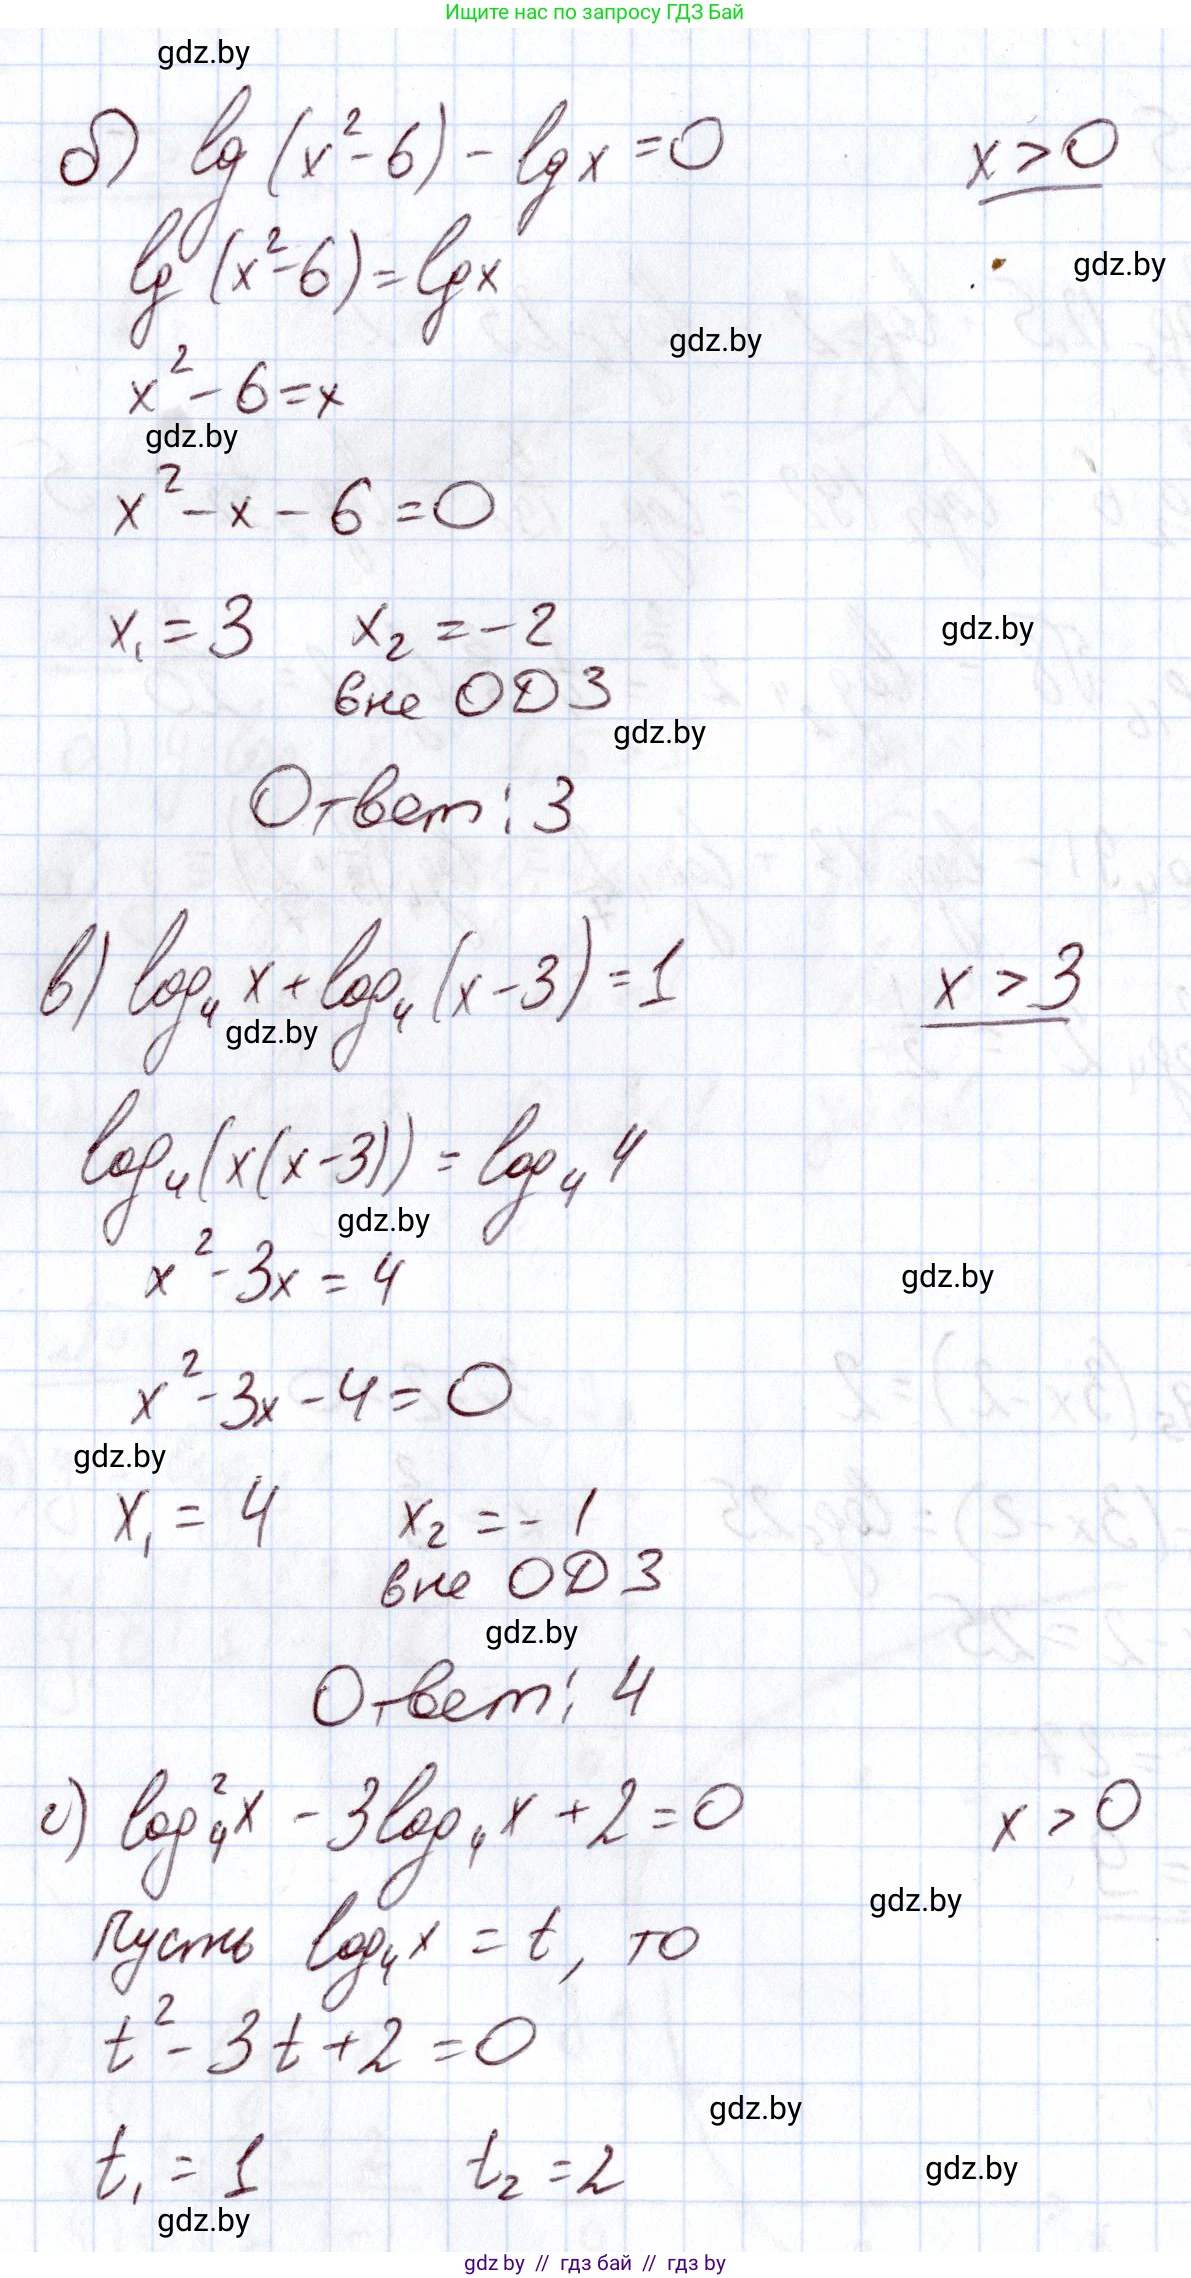 Ищите нас по запросу ГДЗ Бай
gdz.by
б) lg (x²-6) - lg x = 0 x > 0
lg (x²-6) = lg x
gdz.by
gdz.by
x² - 6 = x
gdz.by
x² - x - 6 = 0
x₁ = 3 x₂ = -2
gdz.by
вне ОДЗ
gdz.by
Ответ: 3
в) log₄ x + log₄ (x-3) = 1 x > 3
gdz.by
log₄ (x(x-3)) = log₄ 4
gdz.by
x² - 3x = 4
gdz.by
x² - 3x - 4 = 0
gdz.by
x₁ = 4 x₂ = -1
вне ОДЗ
gdz.by
Ответ: 4
г) log₄² x - 3 log₄ x + 2 = 0 x > 0
gdz.by
Пусть log₄ x = t, то
t² - 3t + 2 = 0
gdz.by
t₁ = 1 t₂ = 2
gdz.by
gdz.by
gdz by // гдз бай // гдз by